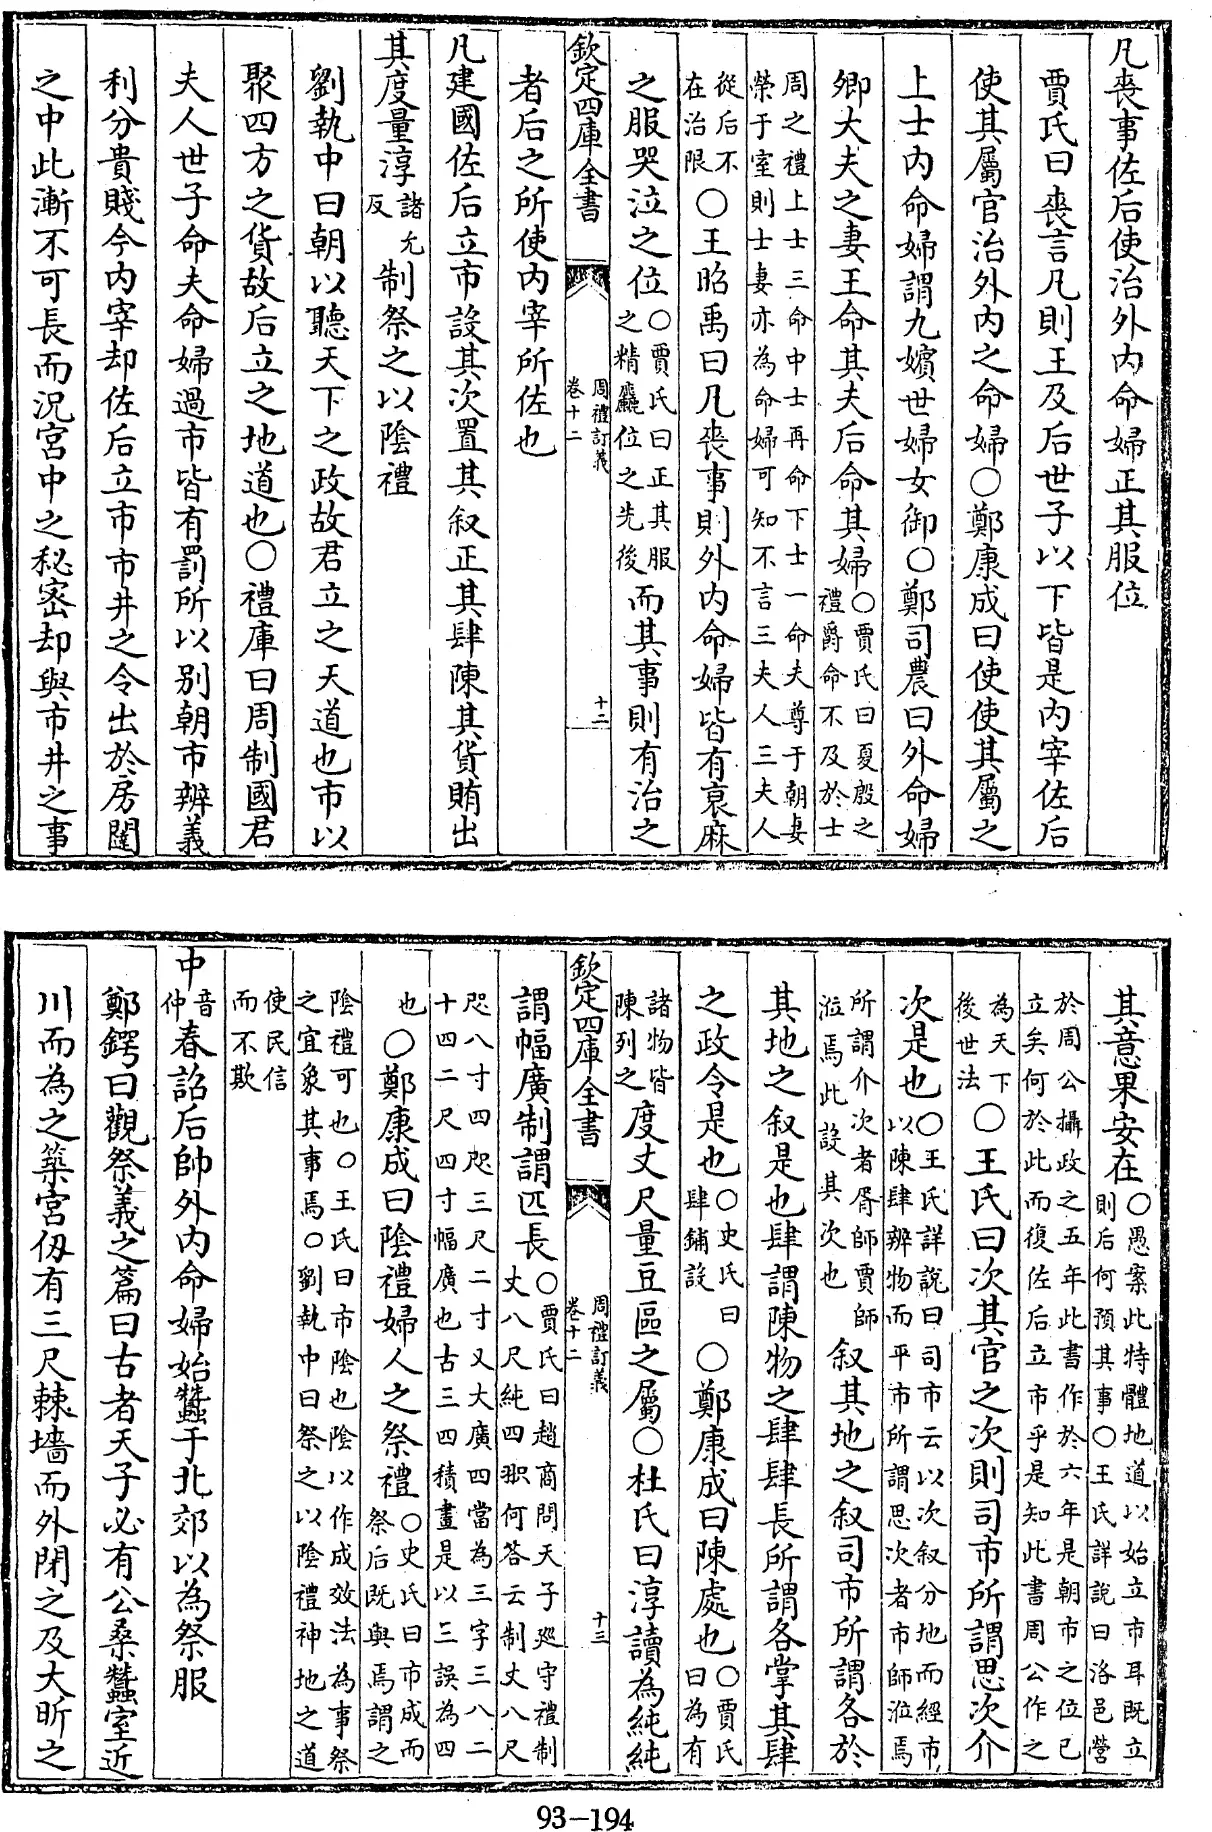 凡喪事佐后使治外内命婦正其服位
賈氏曰喪言凡則王及后世子以下皆是内宰佐后
使其屬官治外内之命婦○鄭康成曰使使其屬之
上士内命婦謂九嬪世婦女御○鄭司農曰外命婦
卿大夫之妻王命其夫后命其婦○賈氏曰夏殷之
禮爵命不及於士
周之禮上士三命中士再命下士一命夫尊于朝妻
榮于室則士妻亦為命婦可知不言三夫人三夫人
從后不
在治限○王昭禹曰凡喪事則外内命婦皆有衰麻
之服哭泣之位○賈氏曰正其服
之精麤位之先後而其事則有治之
欽定四庫全書
周禮訂義
卷十二
十二
者后之所使内宰所佐也
凡建國佐后立市設其次置其叙正其肆陳其貨賄出
其度量淳諸允
反制祭之以陰禮
劉執中曰朝以聽天下之政故君立之天道也市以
聚四方之貨故后立之地道也○禮庫曰周制國君
夫人世子命夫命婦過市皆有罰所以别朝市辨義
利分貴賤今内宰却佐后立市市井之令出於房闥
之中此漸不可長而况宮中之秘密却與市井之事
其意果安在○愚案此特體地道以始立市耳既立
則后何預其事○王氏詳說曰洛邑營
於周公攝政之五年此書作於六年是朝市之位已
立矣何於此而復佐后立市乎是知此書周公作之
為天下
後世法○王氏曰次其官之次則司市所謂思次介
次是也○王氏詳說曰司市云以次叙分地而經市
以陳肆辨物而平市所謂思次者市師涖焉
所謂介次者胥師賈師
涖焉此設其次也叙其地之叙司市所謂各於
其地之叙是也肆謂陳物之肆肆長所謂各掌其肆
之政令是也○史氏曰
肆鋪設○鄭康成曰陳處也○賈氏
曰為有
諸物皆
陳列之度丈尺量豆區之屬○杜氏曰淳讀為純純
欽定四庫全書
周禮訂義
卷十二
十三
謂幅廣制謂匹長○賈氏曰趙商問天子廵守禮制
丈八尺純四㧟何答云制丈八尺
咫八寸四咫三尺二寸又大廣四當為三字三八二
十四二尺四寸幅廣也古三四積畫是以三誤為四
也○鄭康成曰陰禮婦人之祭禮○史氏曰市成而
祭后既與焉謂之
陰禮可也○王氏曰市陰也陰以作成效法為事祭
之宜象其事焉○劉執中曰祭之以陰禮神地之道
使民信
而不欺
中音
仲春詔后帥外内命婦始蠶于北郊以為祭服
鄭鍔曰觀祭義之篇曰古者天子必有公桑蠶室近
川而為之築宮仭有三尺棘墻而外閉之及大昕之
93-194